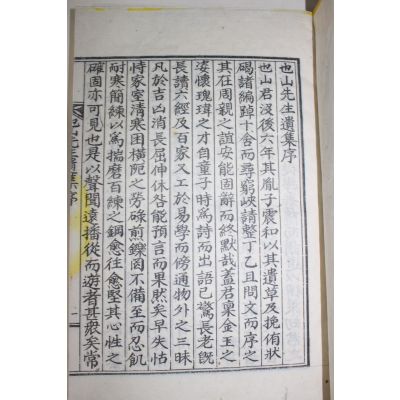 也山先生遺集序
也山君沒後六年其胤子震和以其遺草及挽侑狀
碣諸編踔十舍而尋窮峽請整丁乙且問文而序之
其在周親之誼安能固辭而終默哉蓋君稟金玉之
姿懷瑰瑋之才自童子時爲詩而出語已驚長老旣
長讀六經及百家又工於易學而傍通物外之三昧
凡於吉凶消長屈伸休咎能預言而果然矣早失怙
恃家室清寒田橫阨之勞碌煎鑠囡不備至而忍飢
耐寒簡練以爲揣磨百練之鋼愈往愈堅其心性之
確固亦可見也是以聲聞遠播從而遊者甚衆矣常
序
一